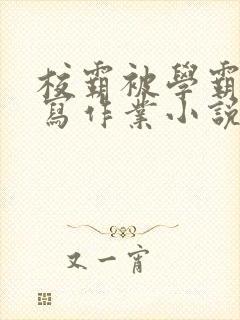 校霸被學霸
寫作業小說
又一宵